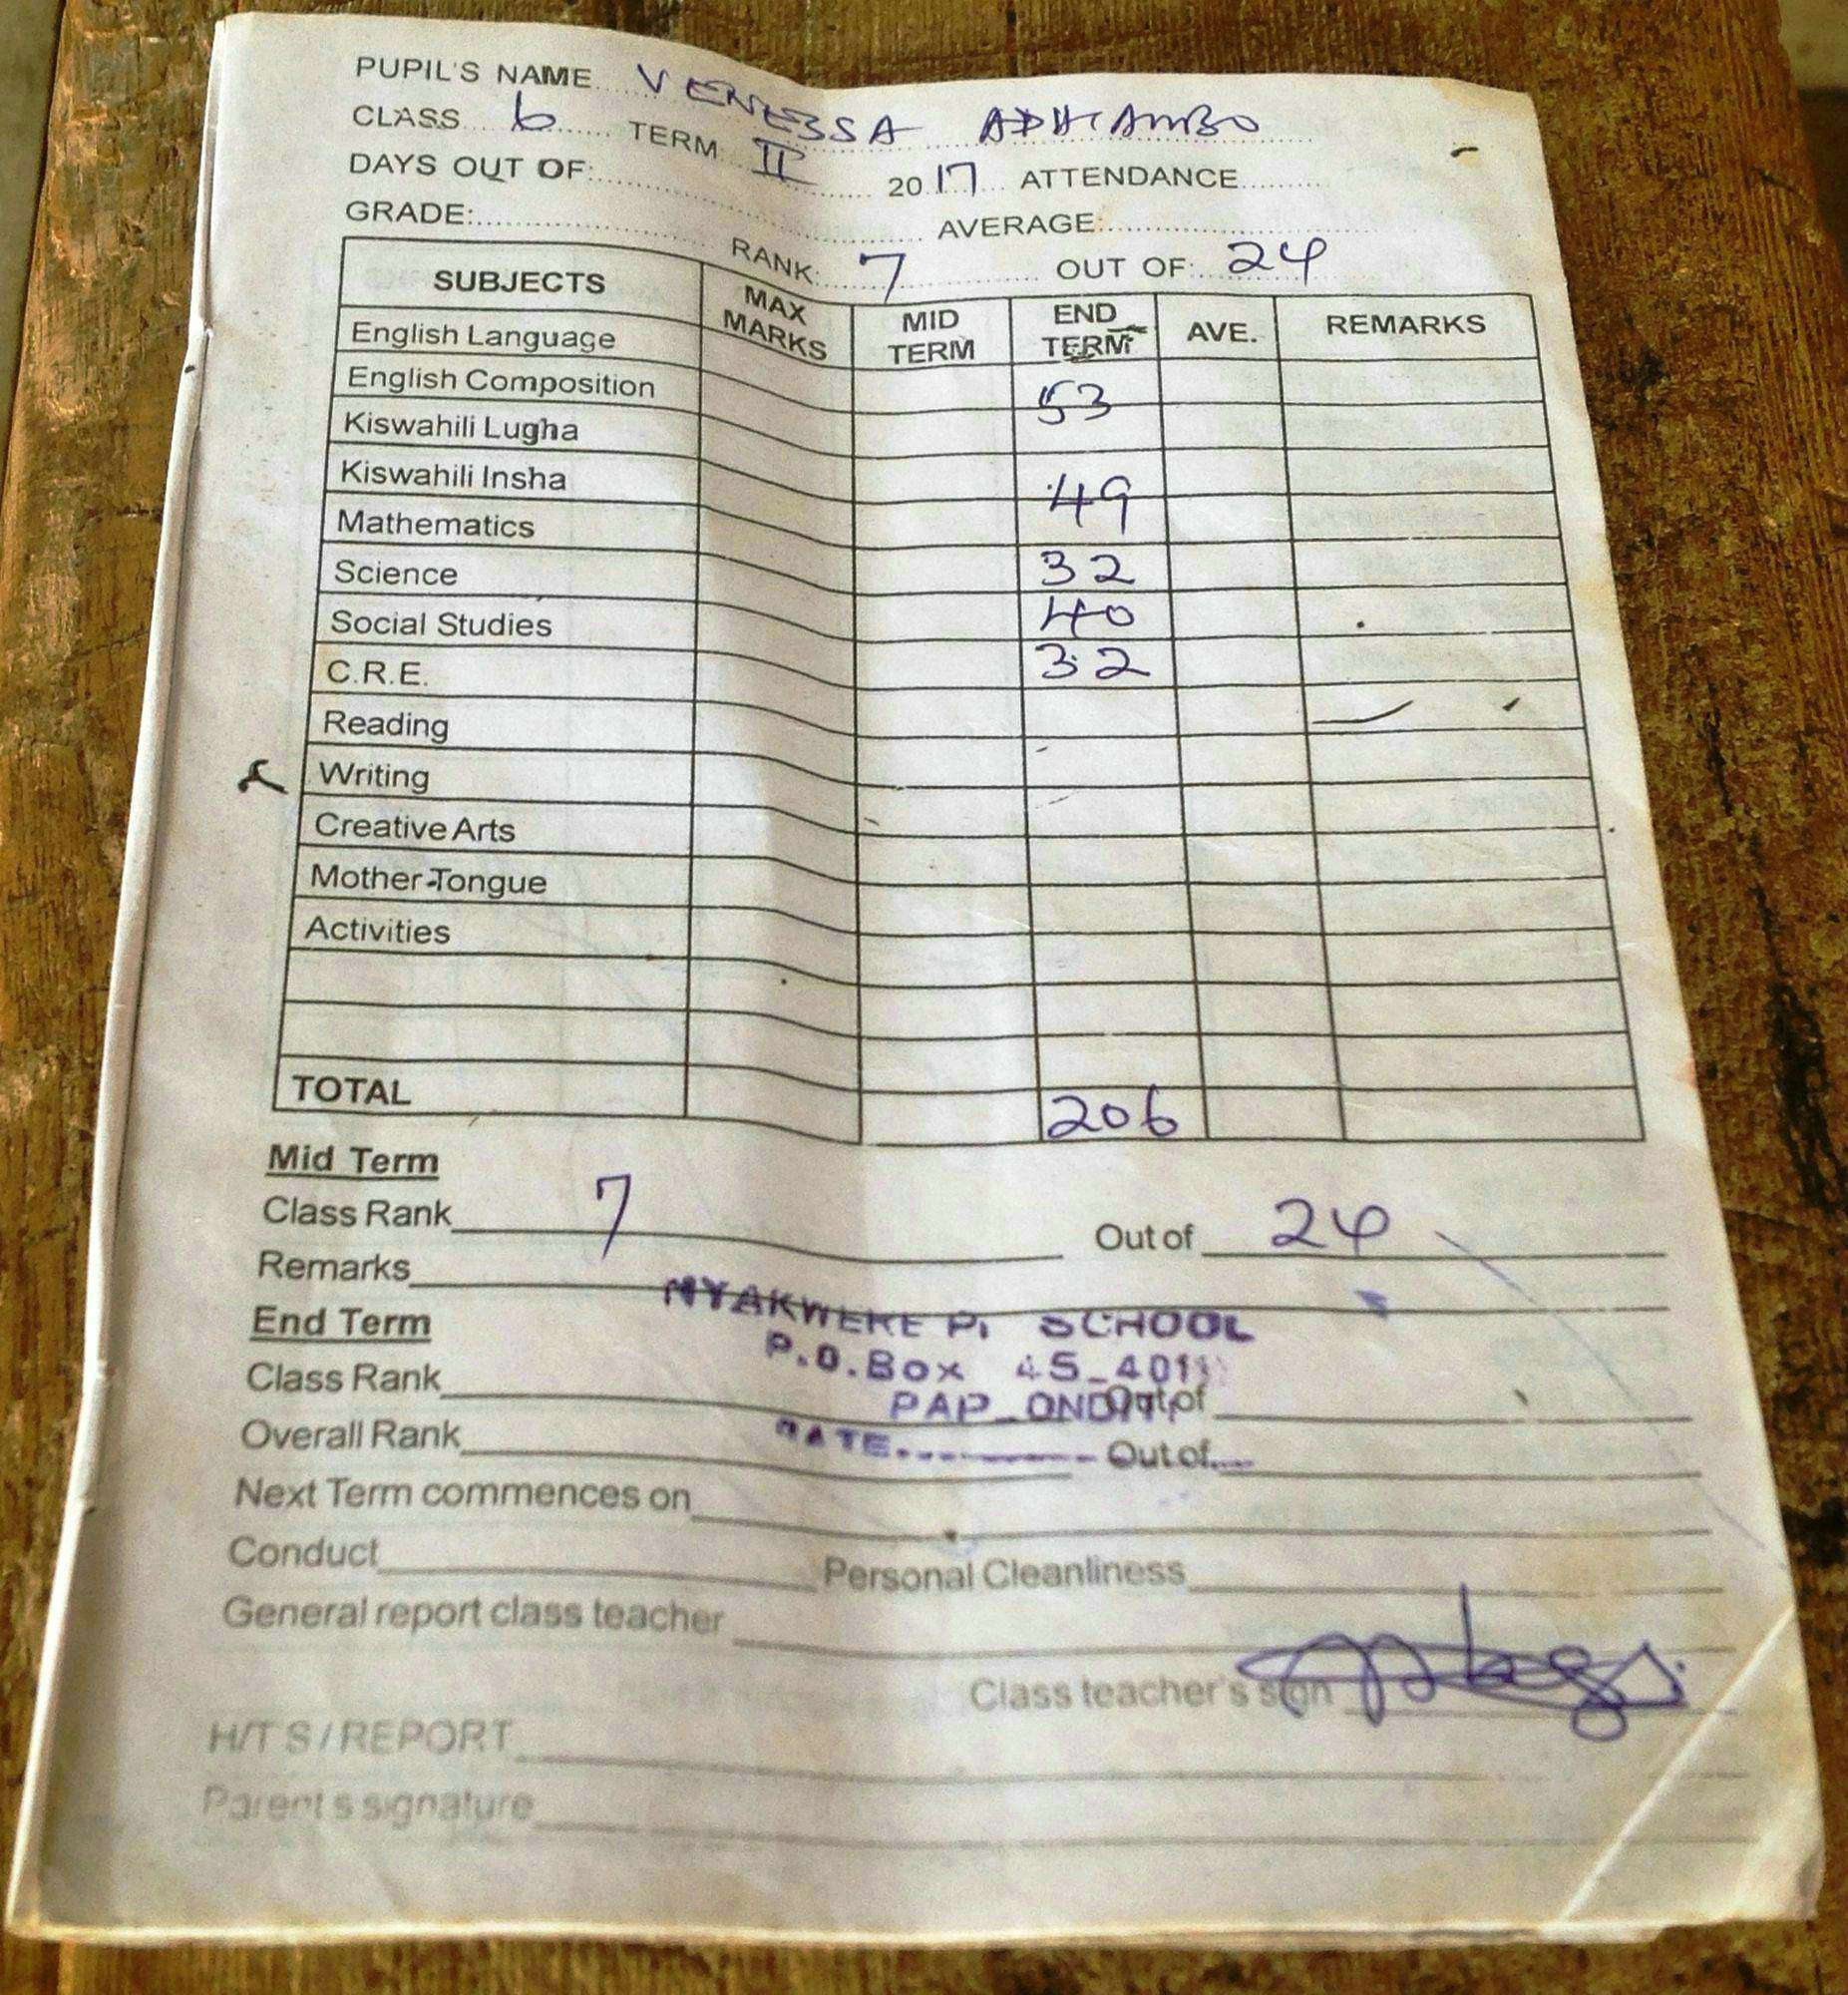 PUPIL'S NAME VENESSA ADHIAMBO
CLASS 6 TERM II 2017 ATTENDANCE
DAYS OUT OF:
GRADE: AVERAGE:
RANK: 7 OUT OF: 24
SUBJECTS MAX MARKS MID TERM END TERM AVE. REMARKS
English Language
English Composition 53
Kiswahili Lugha
Kiswahili Insha 49
Mathematics 32
Science 40
Social Studies 32
C.R.E.
Reading
Writing
Creative Arts
Mother-Tongue
Activities
TOTAL 206
Mid Term
Class Rank 7 Out of 24
Remarks
NYAKWERE P. SCHOOL
End Term
P.O.Box 45-401
Class Rank Out of
PAP-ONDITI
Overall Rank Out of
DATE
Next Term commences on
Conduct Personal Cleanliness
General report class teacher
Class teacher's sign
H/T S / REPORT
Parent s signature